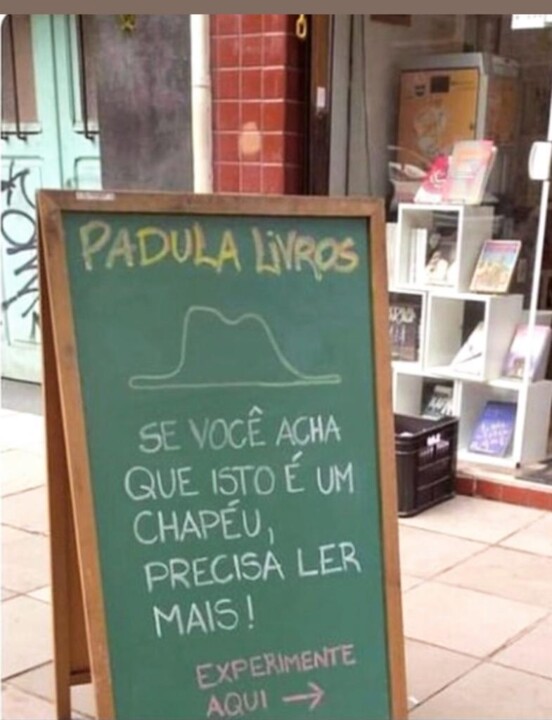 PADULA LiVROS
SE VOCÊ ACHA
QUE ISTO É UM
CHAPÉU,
PRECISA LER
MAIS!
EXPERIMENTE
AQUI →